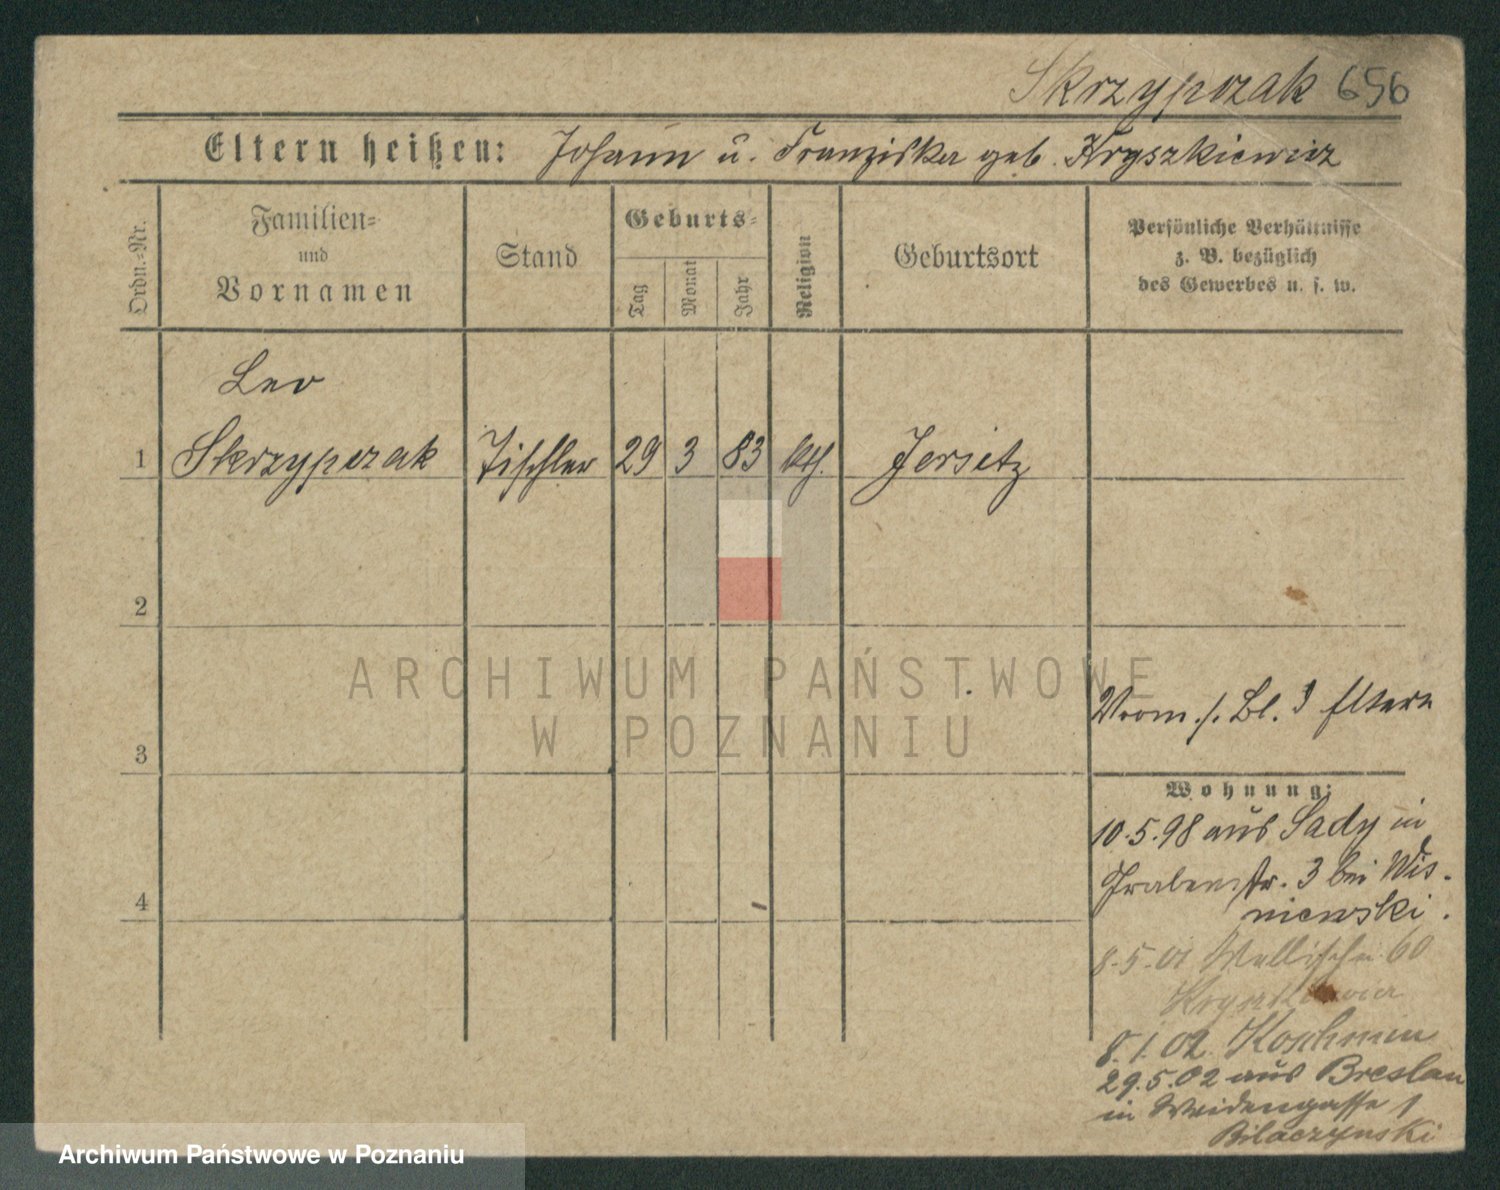 Skrzypczak 656
Eltern heißen: Johann u. Franziska geb. Kryszkiewicz
Ordn.-Nr.
Familien-
und
Vornamen
Stand
Geburts-
Tag
Monat
Jahr
Religion
Geburtsort
Persönliche Verhältnisse
z. B. bezüglich
des Gewerbes u. s. w.
Leo
1 Skrzypczak Tischler 29 3 83 kth. Jersitz
2
3
4
Bl. Eltern
Wohnung:
10.5.98 aus Sady in
Grabenstr. 3 bei Wis-
niewski.
8.5.01 Wallischei 60
Kryszkiewicz
8.1.02 Koschmin
29.5.02 aus Breslau
in Weidengasse 1
Bilaczynski
ARCHIWUM PAŃSTWOWE
W POZNANIU
Archiwum Państwowe w Poznaniu